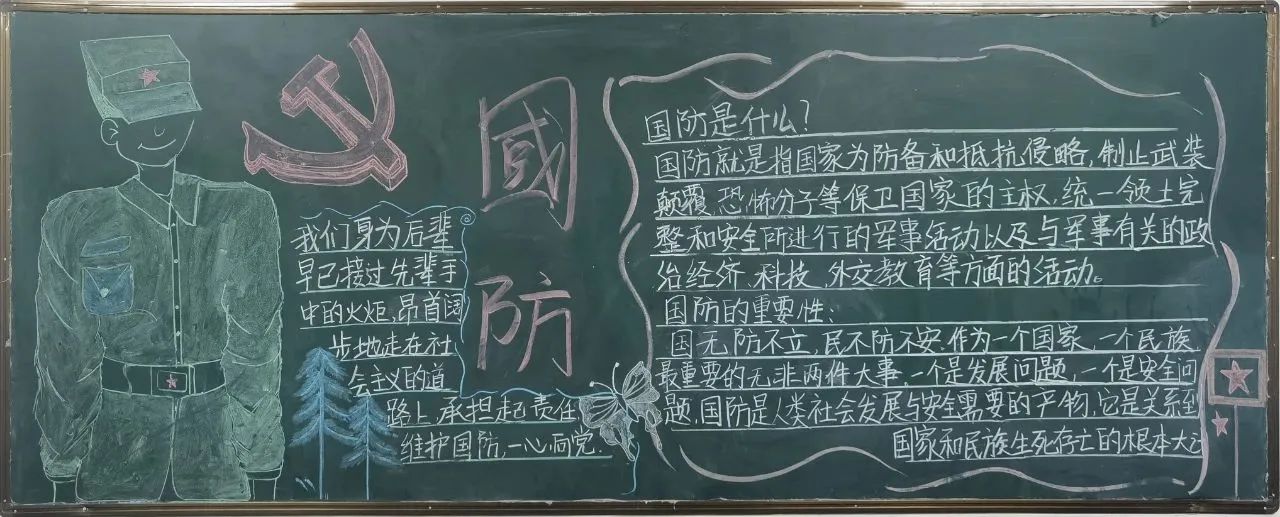 國防
我们身为后辈
早已接过先辈手
中的火炬,昂首阔
步地走在社
会主义的道
路上,承担起责任
维护国防,一心向党.
国防是什么?
国防就是指国家为防备和抵抗侵略,制止武装
颠覆,恐怖分子等保卫国家的主权,统一领土完
整和安全所进行的军事活动以及与军事有关的政
治经济,科技,外交教育等方面的活动。
国防的重要性:
国无防不立,民不防不安,作为一个国家,一个民族,
最重要的无非两件大事,一个是发展问题,一个是安全问
题,国防是人类社会发展与安全需要的产物,它是关系到
国家和民族生死存亡的根本大